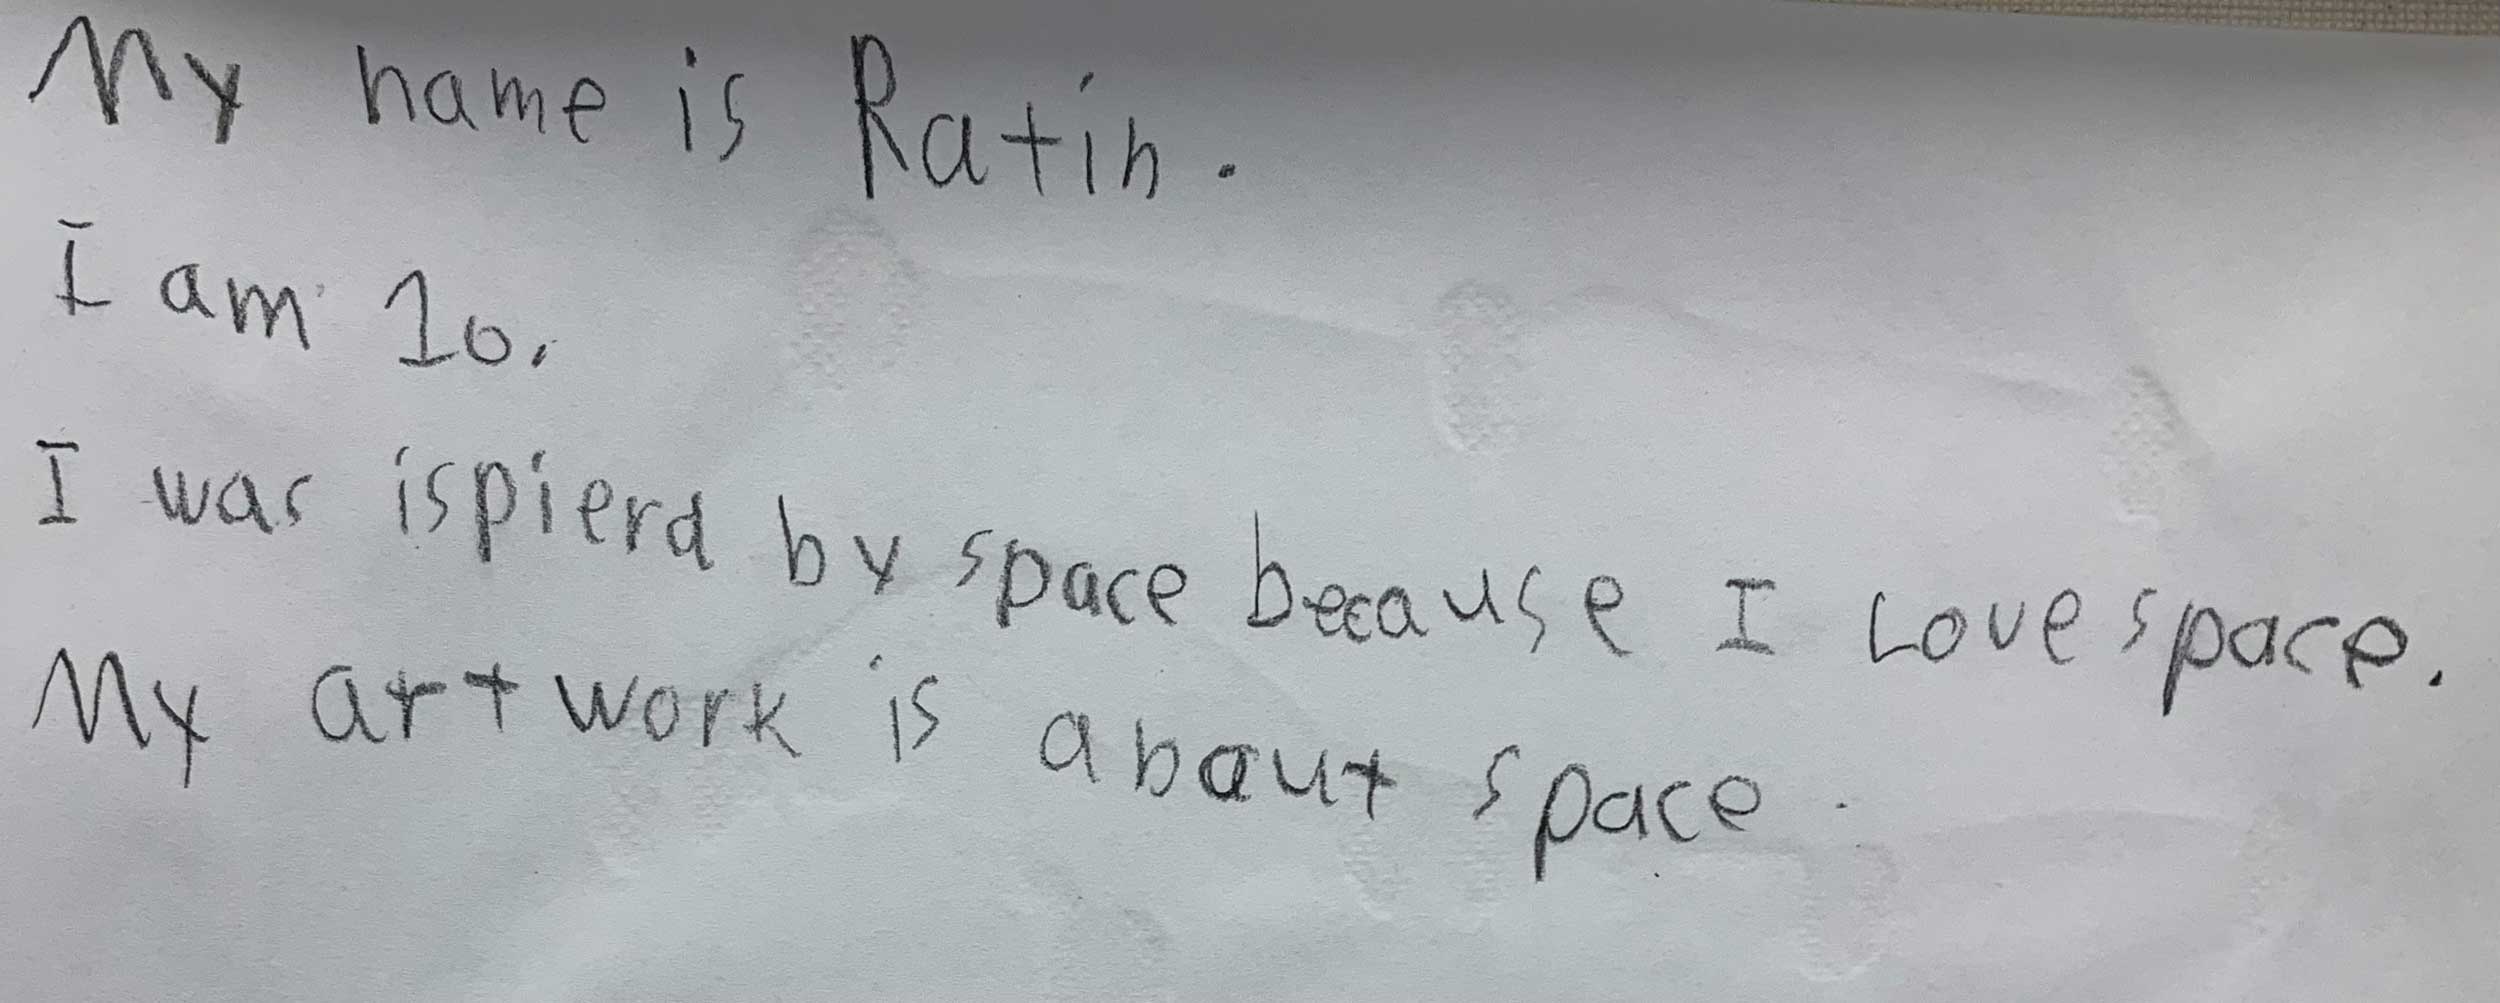 My name is Ratin.
I am 10.
I was ispierd by space because I Love space.
My artwork is about space.